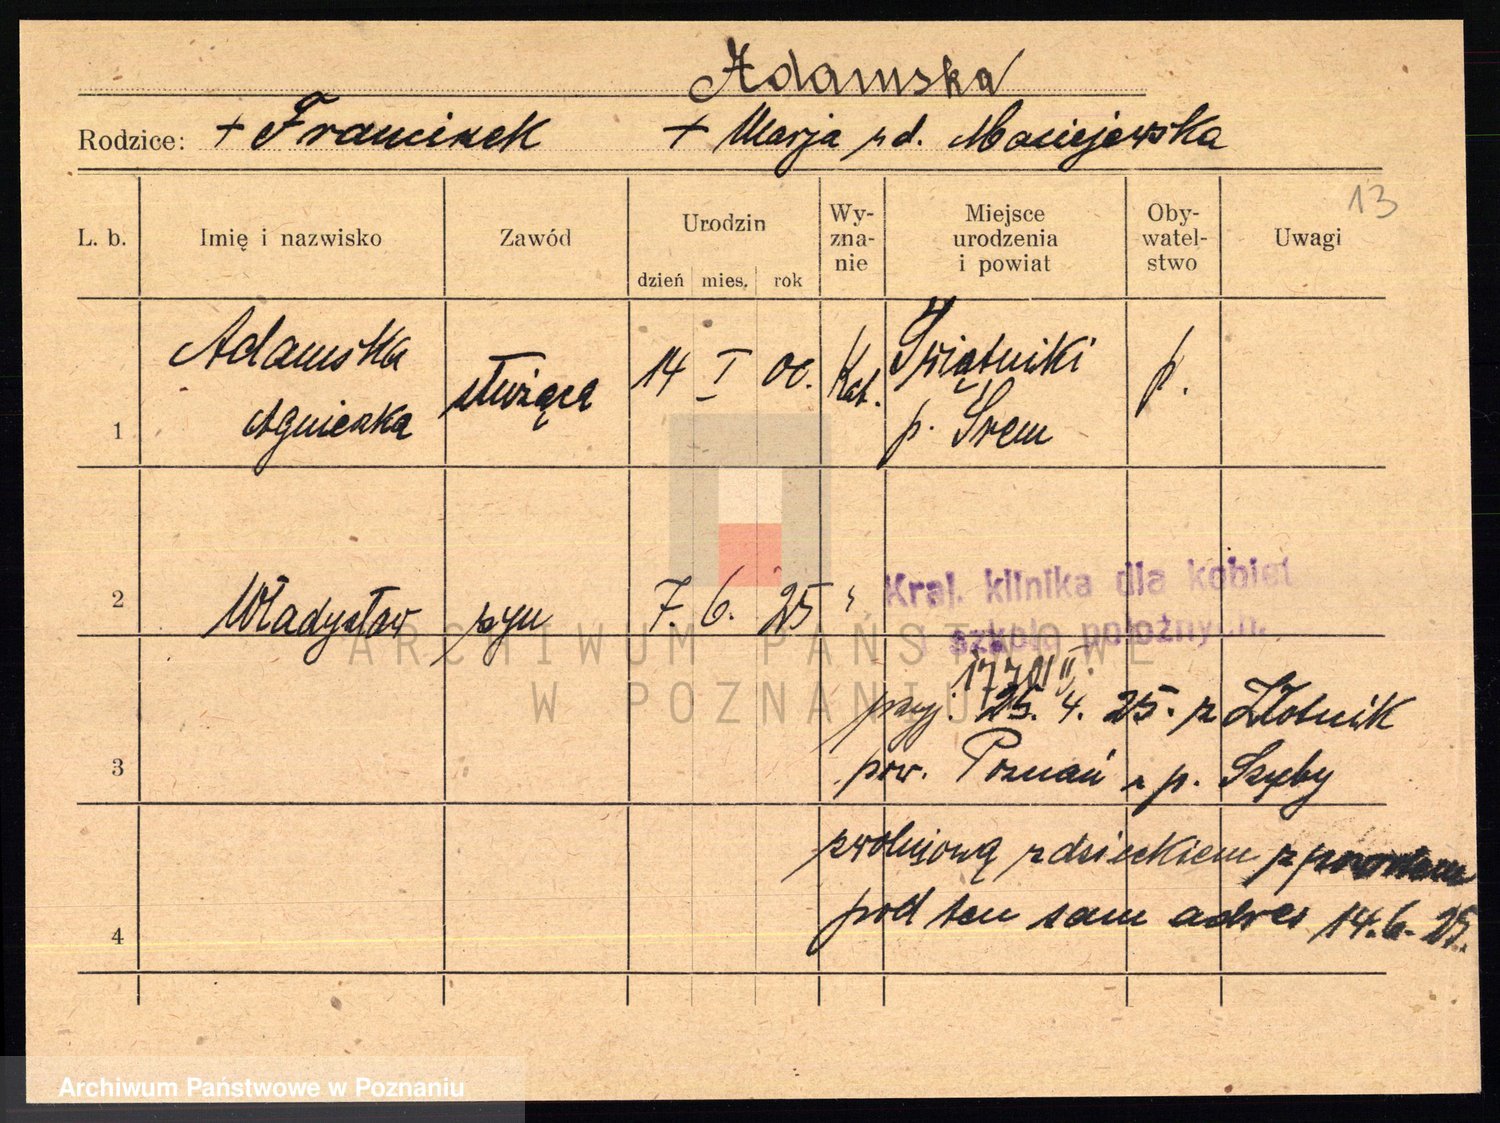 Adamska
Rodzice: + Franciszek + Marja z d. Maciejewska
13
L. b. Imię i nazwisko Zawód Urodzin dzień mies. rok Wy-zna-nie Miejsce urodzenia i powiat Oby-watel-stwo Uwagi
Adamska służąca 14 I 00. Kat. Świątniki p.
1 Agnieszka p. Śrem
2 Władysław syn 7. 6. 25 " Kraj. klinika dla kobiet
i szkoła położnych.
ARCHIWUM PAŃSTWOWE
W POZNANIU
przyj. 25. 4. 25. z Złotnik
3 pow. Poznań u p.
zwolnioną z dzieckiem z powrotem
4 pod ten sam adres 14. 6. 25.
Archiwum Państwowe w Poznaniu